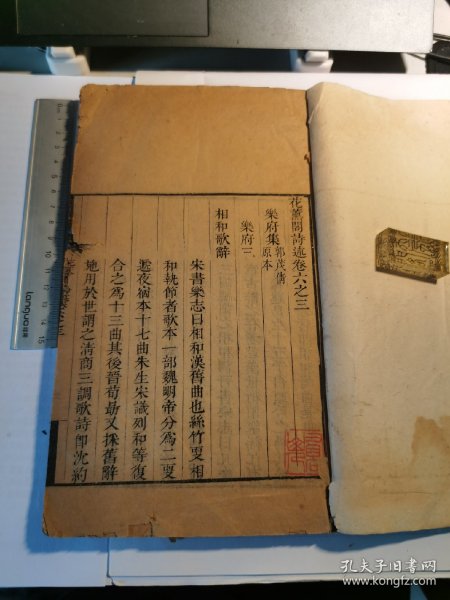 花薰閣詩述卷六之三
樂府集郭茂倩原本
樂府三
相和歌辭
宋書樂志曰相和漢舊曲也絲竹更相
和執節者歌本一部魏明帝分爲二更
遞夜宿本十七曲朱生宋識列和等復
合之爲十三曲其後晉荀勗又採舊辭
施用於世謂之清商三調歌詩卽沈約
Languo
孔夫子旧书网
www.kongfz.com